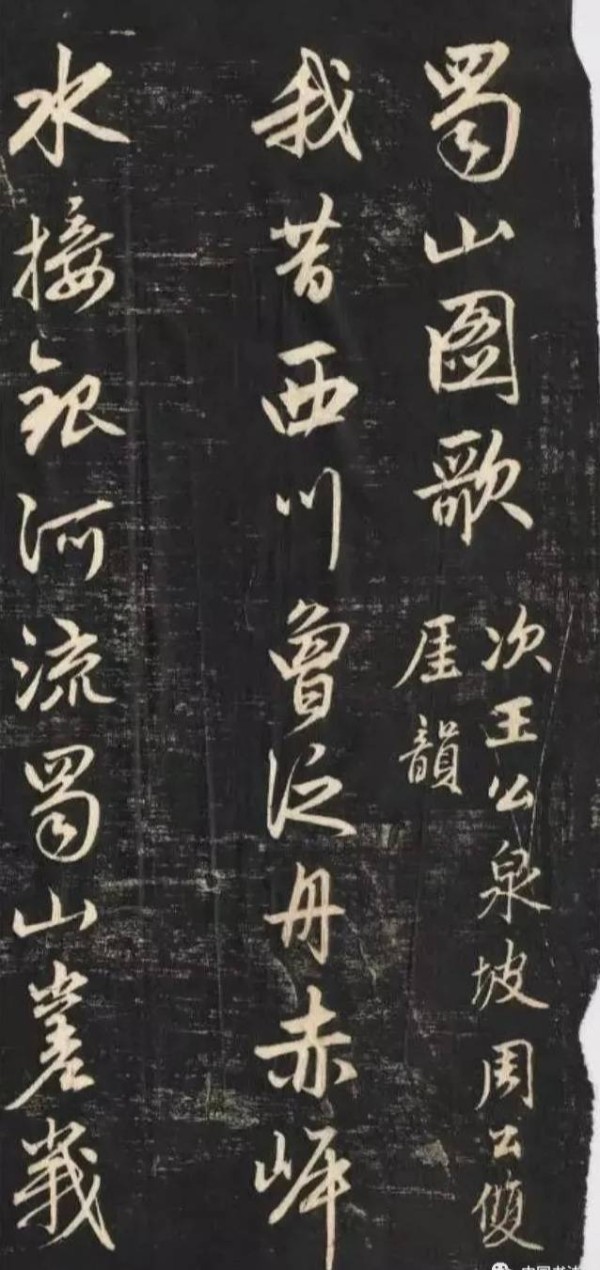 蜀山圖歌
次王公泉坡周公雙
厓韻
我昔西川曾泛舟赤岸
水接銀河流蜀山嵳峩